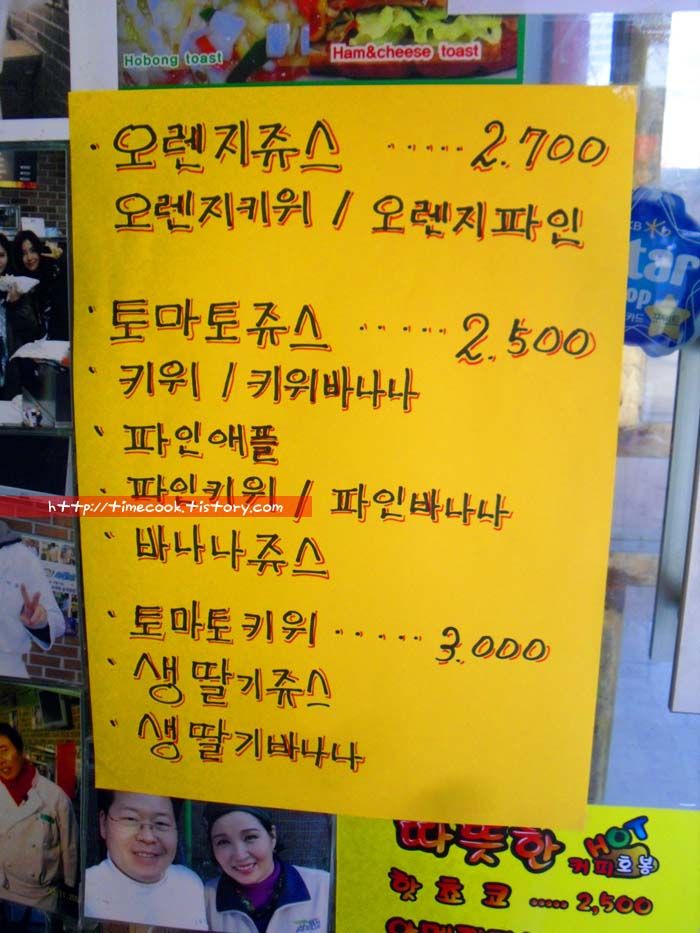 Hobong toast
Ham&cheese toast
· 오렌지쥬스 ····· 2.700
오렌지키위 / 오렌지파인
· 토마토쥬스 ······ 2.500
· 키위 / 키위바나나
· 파인애플
· 파인키위 / 파인바나나
http://timecook.tistory.com
· 바나나쥬스
· 토마토키위 ····· 3.000
· 생딸기쥬스
· 생딸기바나나
KB
tar
op
카드
따뜻한 HOT
커피호봉
핫쵸코 ····· 2,500